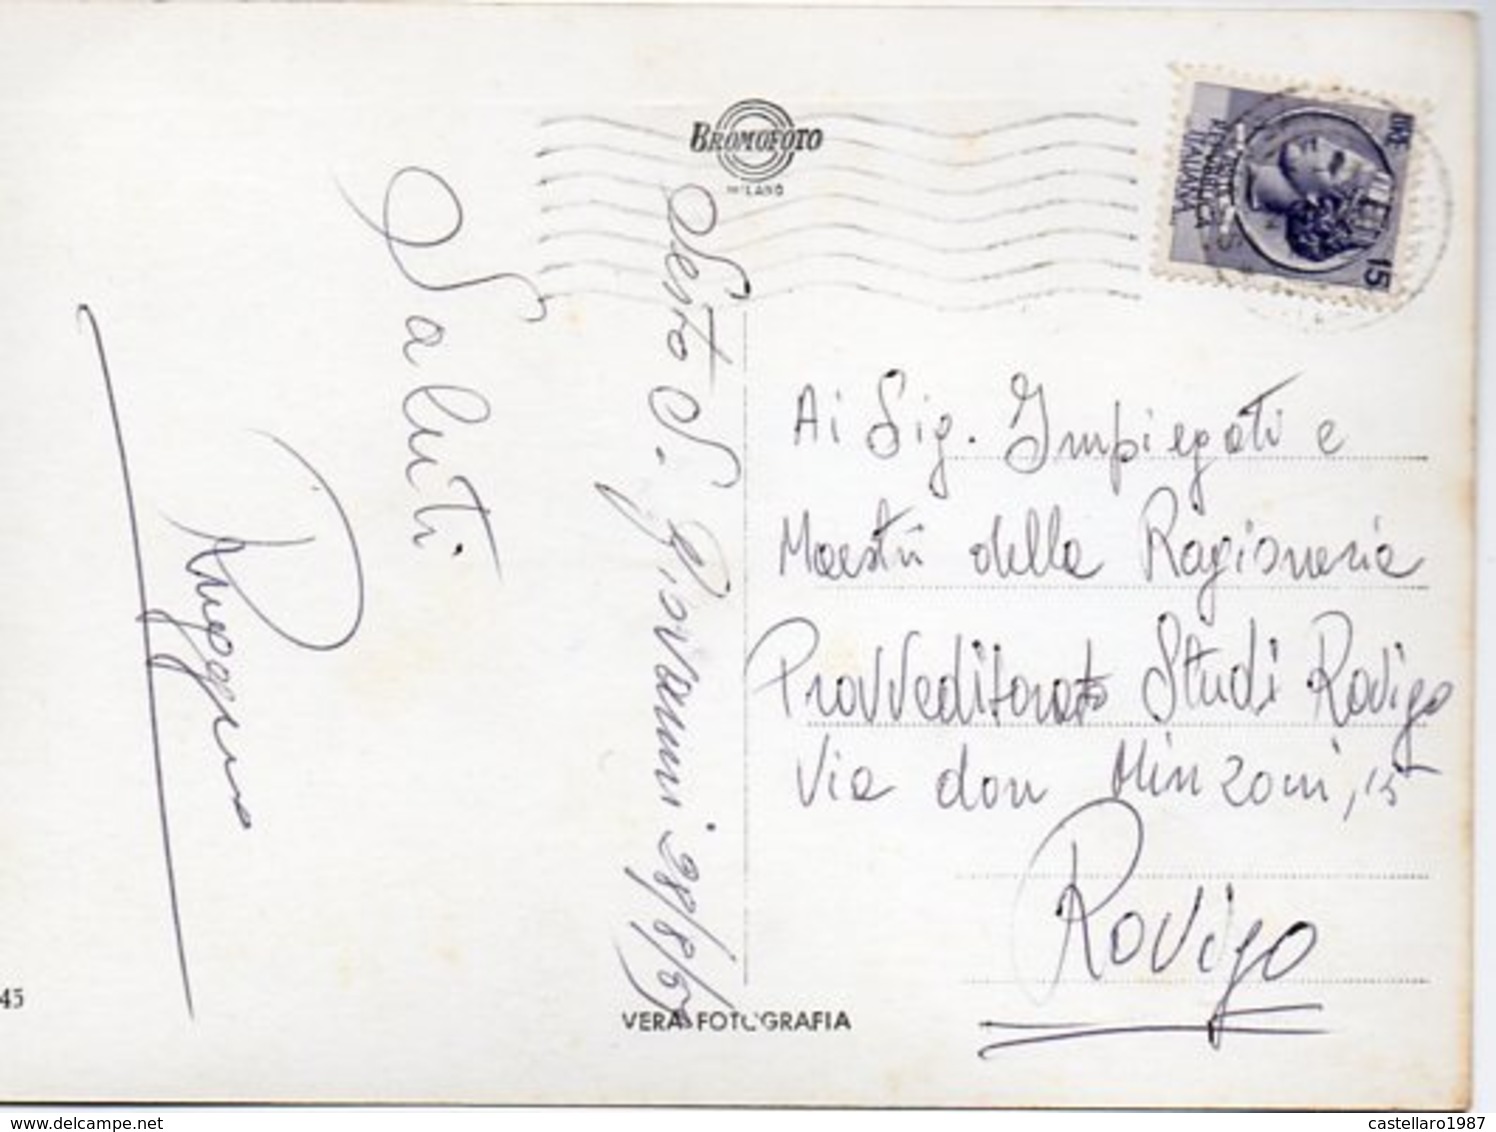 BROMOFOTO
MILANO
LIRE 15
REPUBBLICA
ITALIANA
Sesto S. Giovanni 28/8/65
Saluti
Ruggero
Ai Sig. Impiegati e
Maestri della Ragioneria
Provveditorato Studi Rovigo
Via don Minzoni, 15
Rovigo
45
VERA FOTOGRAFIA
delcampe.net
castellaro1987